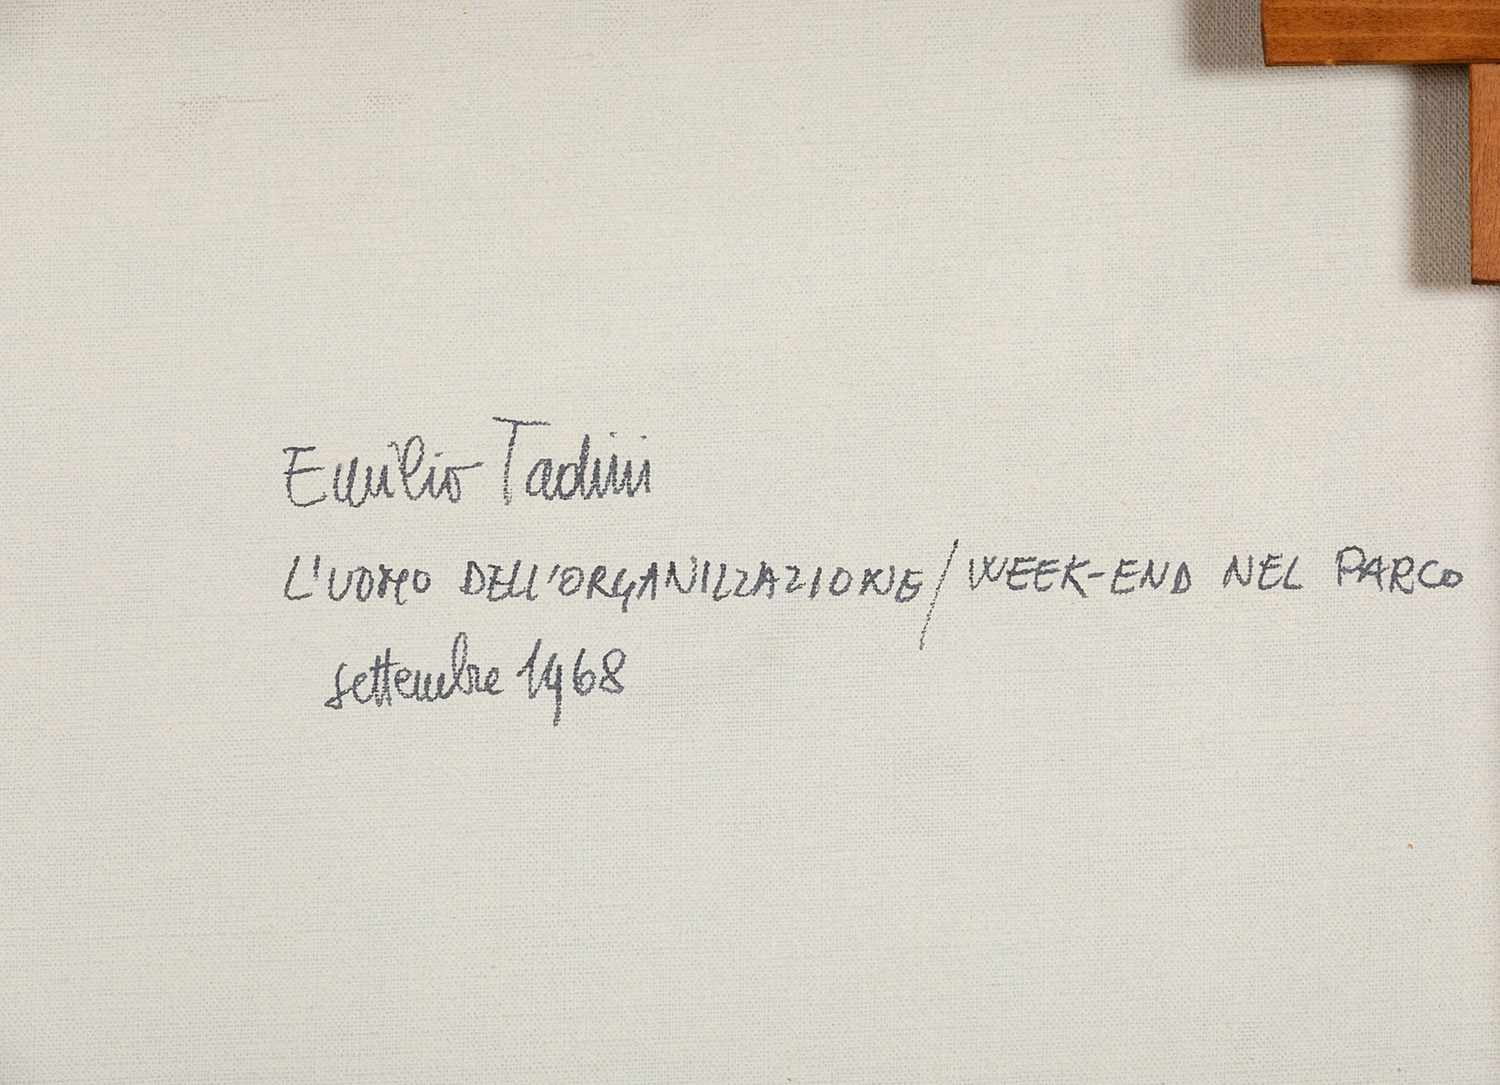 Emilio Tadini
L'UOMO DELL'ORGANIZZAZIONE/WEEK-END NEL PARCO
settembre 1968